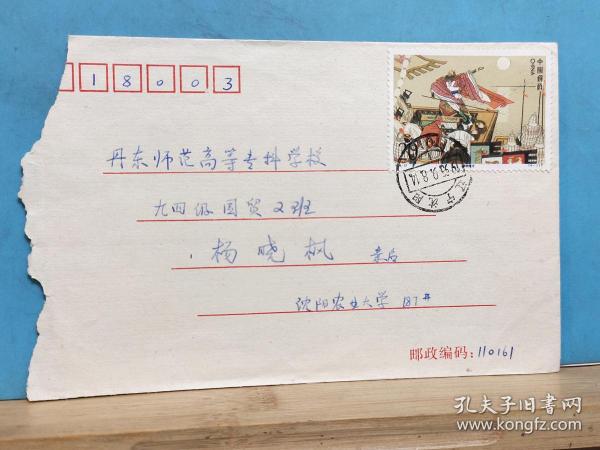 18003
中国邮政
CHINA
丹东师范高等专科学校
九四级国贸2班
杨晓枫 亲启
沈阳农业大学 187#
邮政编码：110161
孔夫子旧书网
www.kongfz.com